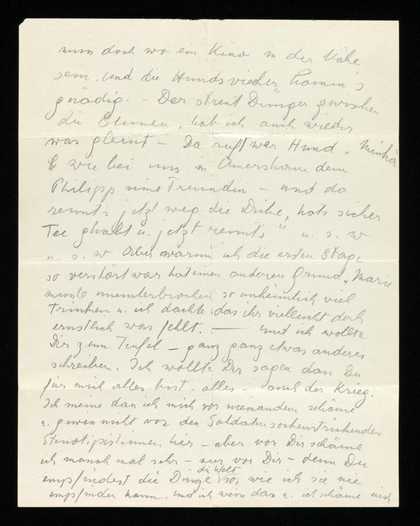 nun doch wo ein Kino in der Nähe
sein und die Hundsviecher haben's
gnädig. – Der streut Dünger zwischen
die Blumen, hab ich auch wieder
was gelernt – Da ruft wer Hund
wie bei uns in dem
Philipp eine Freundin – und da
rennt's jetzt weg die Dicke, hat's sicher
Tee u. jetzt rennt's" u. s. w
u. s. w Aber warum ich die ersten Tage
so verstört war hat einen anderen Grund. Marie
musste ununterbrochen so unheimlich viel
trinken u. ich dachte das ihr vielleicht doch
ernstlich was fehlt. — und ich wollte
Dir zum Teufel – ganz ganz etwas anderes
schreiben. Ich wollte Dir sagen dass Du
für mich alles bist – alles – und der Krieg.
Ich meine das ich mich vor niemandem schäme
u. gewiss nicht vor den Soldaten
Stenotipistinnen hier – aber vor Dir schäme
ich manchmal sehr – nur vor Dir – denn Du
empfindest die Dinge die Welt so, wie ich sie nie
empfinden kann. und ich weiss das u. ich schäme mich